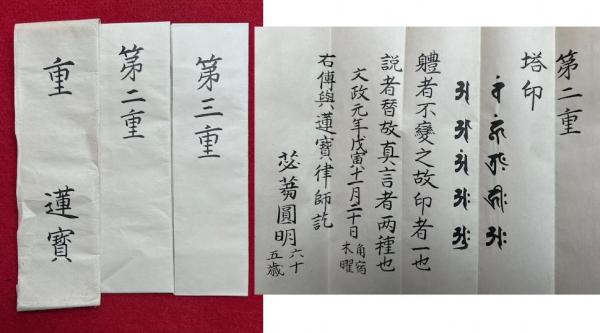 重 蓮寶
第二重
第三重
第二重
塔印
軆者不變之故印者一也
説者替故真言者两種也
文政元年戊寅十一月二十日 角宿 木曜
右傳與蓮寶律師訖
苾蒭圓明 六十五歳